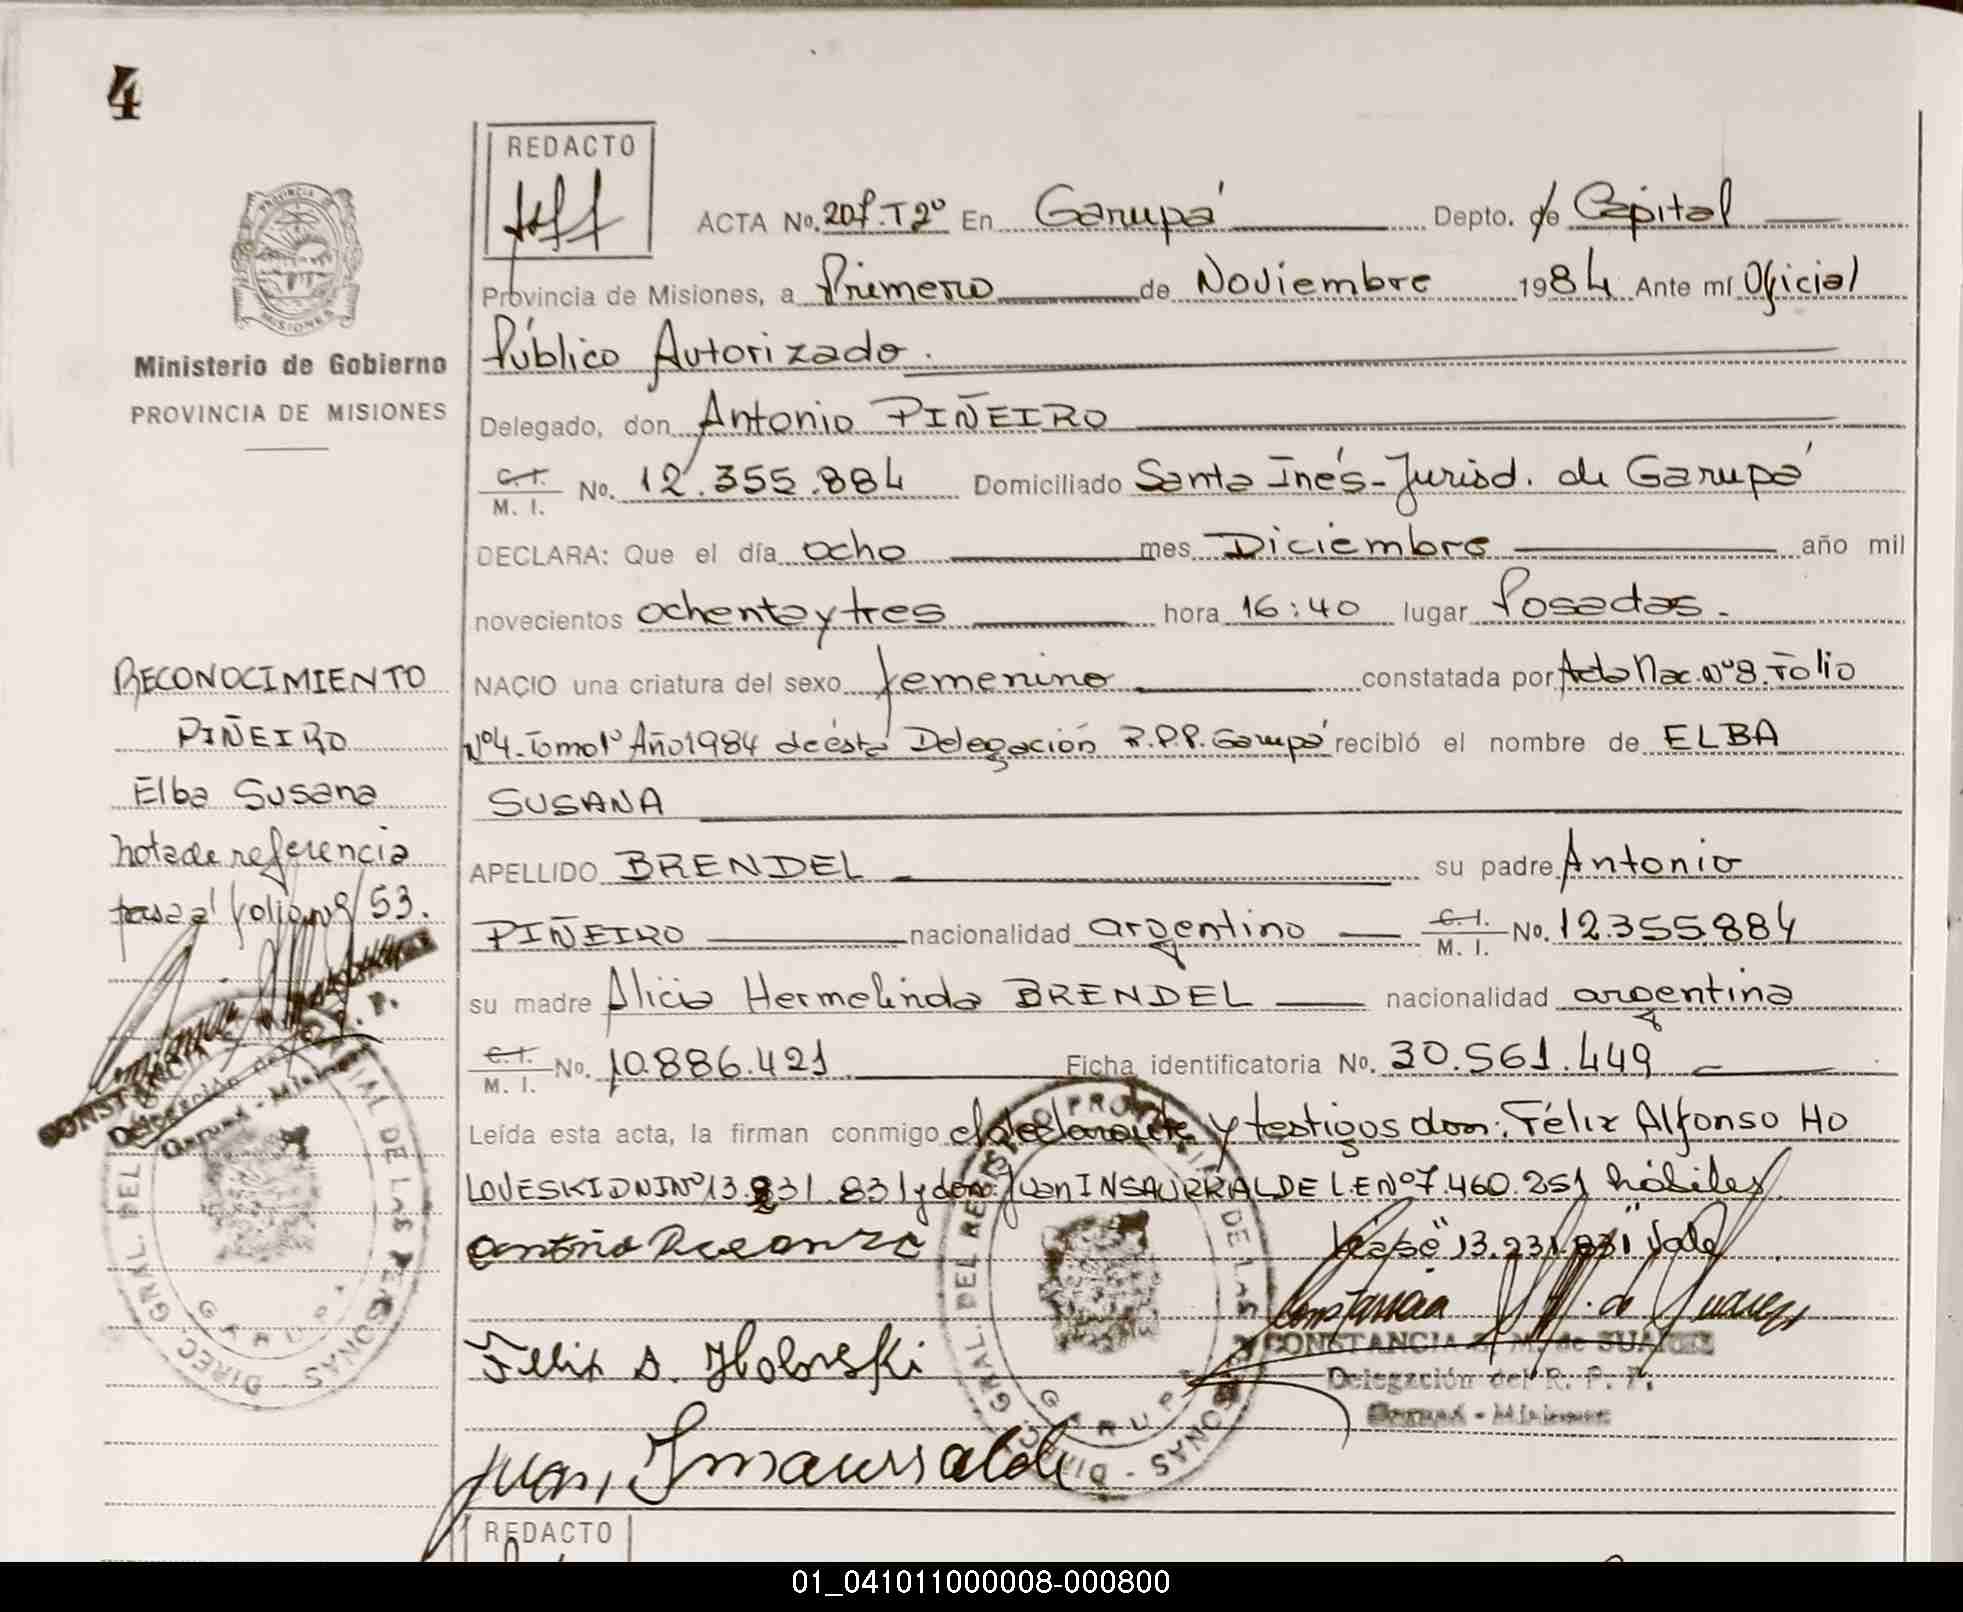 4
REDACTO
ACTA No. 207.T2º En Garupá Depto. de Capital
Provincia de Misiones, a Primero de Noviembre 1984 Ante mí Oficial
Público Autorizado.
Delegado, don Antonio PIÑEIRO
C.I. M. I. No. 12.355.884 Domiciliado Santa Inés-Jurisd. de Garupá
DECLARA: Que el día ocho mes Diciembre año mil
novecientos ochenta y tres hora 16:40 lugar Posadas.
NACIO una criatura del sexo femenino constatada por Acta Nac. Nº 8. Folio
Nº4. Tomo 1º Año 1984 de ésta Delegación R.P.P. Garupá recibió el nombre de ELBA
SUSANA
APELLIDO BRENDEL su padre Antonio
PIÑEIRO nacionalidad argentino C.I. M. I. No. 12.355.884
su madre Alicia Hermelinda BRENDEL nacionalidad argentina
C.I. M. I. No. 10.886.421 Ficha identificatoria No. 30.561.449
Leída esta acta, la firman conmigo el declarante y testigos don: Félix Alfonso HO
LOVESKI DNI Nº 13.231.831 y don Juan INSAURRALDE L.E Nº 7.460.251 hábiles.
Véase "13.231.831" Vale
Felix A. Holoveski
Constancia de Suarez
CONSTANCIA M. de SUAREZ
Delegación del R. P. P.
Garupá - Misiones
Juan Insaurralde
DIREC. GRAL. DEL REGISTRO PROVINCIAL DE LAS PERSONAS
GARUPA
REDACTO
PROVINCIA
MISIONES
Ministerio de Gobierno
PROVINCIA DE MISIONES
RECONOCIMIENTO
PIÑEIRO
Elba Susana
nota de referencia
pasa al folio nº 53.
CONSTANCIA
Delegación del R. P. P.
Garupá - Misiones
DIREC. GRAL. DEL DE LAS PERSONAS
GARUPA
01_041011000008-000800